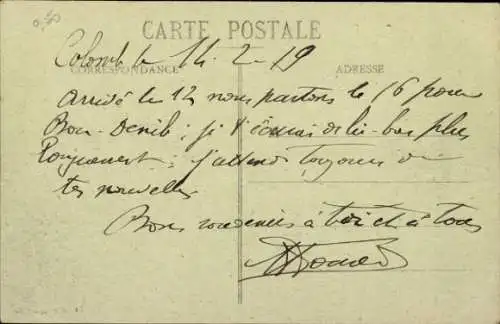 0,50
CARTE POSTALE
Colomb le 14-2-19
CORRESPONDANCE
ADRESSE
Arrivé le 12 nous partons le 16 pour
Bou-Denib ; je t'écrirai de là-bas plus
longuement ; j'attends toujours de
tes nouvelles
Bons souvenirs à toi et à tous